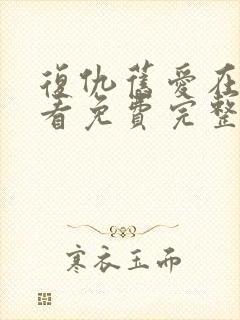 復仇舊愛在
看免費完整
寒衣玉而